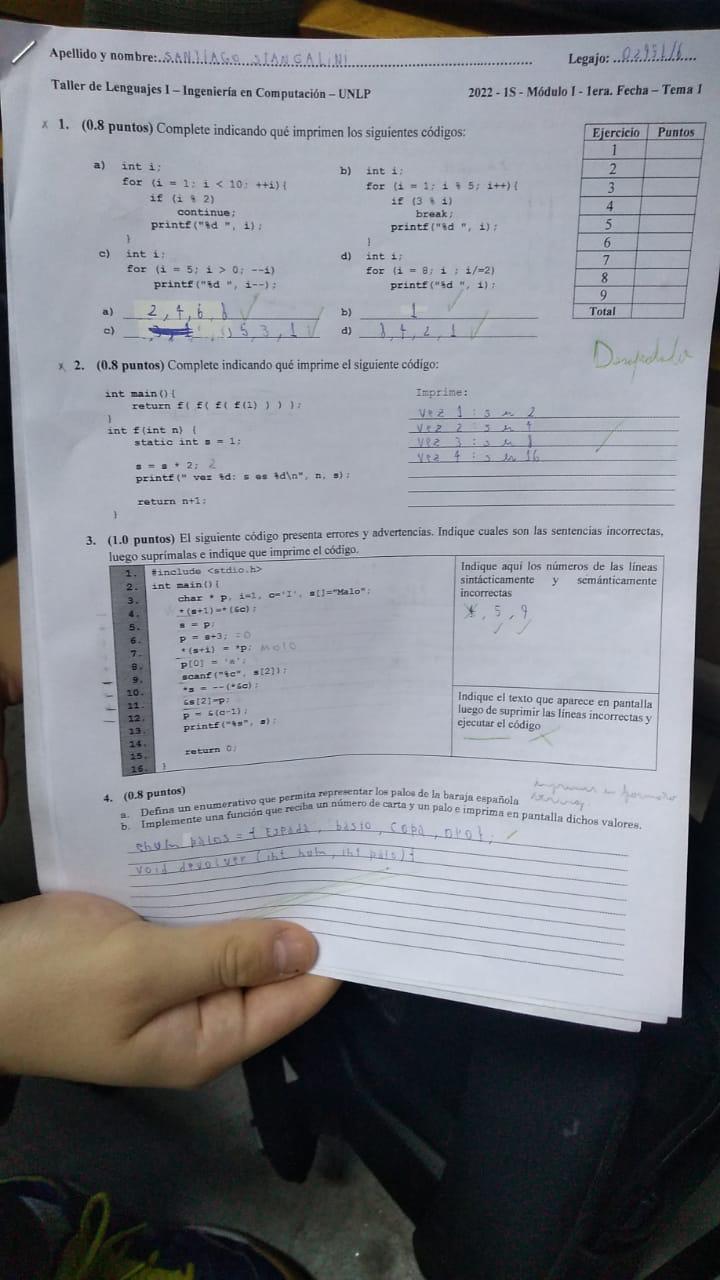 Apellido y nombre: SANTIAGO STANGALINI
Legajo: 02951/6
Taller de Lenguajes I – Ingeniería en Computación – UNLP
2022 - 1S - Módulo I - 1era. Fecha – Tema 1
x 1. (0.8 puntos) Complete indicando qué imprimen los siguientes códigos:
Ejercicio Puntos
1
2
3
4
5
6
7
8
9
Total
a) int i;
for (i = 1; i < 10; ++i){
if (i % 2)
continue;
printf("%d ", i);
}
b) int i;
for (i = 1; i % 5; i++){
if (3 % i)
break;
printf("%d ", i);
}
c) int i;
for (i = 5; i > 0; --i)
printf("%d ", i--);
d) int i;
for (i = 8; i ; i/=2)
printf("%d ", i);
a) 2, 4, 6, 8
b) 1
c) 5, 3, 1
d) 8, 4, 2, 1
x 2. (0.8 puntos) Complete indicando qué imprime el siguiente código:
int main(){
return f( f( f( f(1) ) ) );
}
int f(int n) {
static int s = 1;
s = s * 2; 2
printf(" vez %d: s es %d\n", n, s);
return n+1;
}
Imprime:
vez 1 : s es 2
vez 2 : s es 4
vez 3 : s es 8
vez 4 : s es 16
3. (1.0 puntos) El siguiente código presenta errores y advertencias. Indique cuales son las sentencias incorrectas,
luego suprímalas e indique que imprime el código.
1. #include <stdio.h>
2. int main(){
3. char * p, i=1, c='I', s[]="Malo";
4. *(s+1)=*(&c);
5. s = p;
6. p = s+3; =0
7. *(s+i) = *p; MOLO
8. p[0] = 'a';
9. scanf("%c", s[2]);
10. *s = --(*&c);
11. &s[2]=p;
12. p = &(c-1);
13. printf("%s", s);
14.
15. return 0;
16. }
Indique aquí los números de las líneas
sintácticamente y semánticamente
incorrectas
5, 9
Indique el texto que aparece en pantalla
luego de suprimir las líneas incorrectas y
ejecutar el código
4. (0.8 puntos)
a. Defina un enumerativo que permita representar los palos de la baraja española
b. Implemente una función que reciba un número de carta y un palo e imprima en pantalla dichos valores.
enum palos = { Espada, basto, copa, oro};
void devolver (int num, int palo){